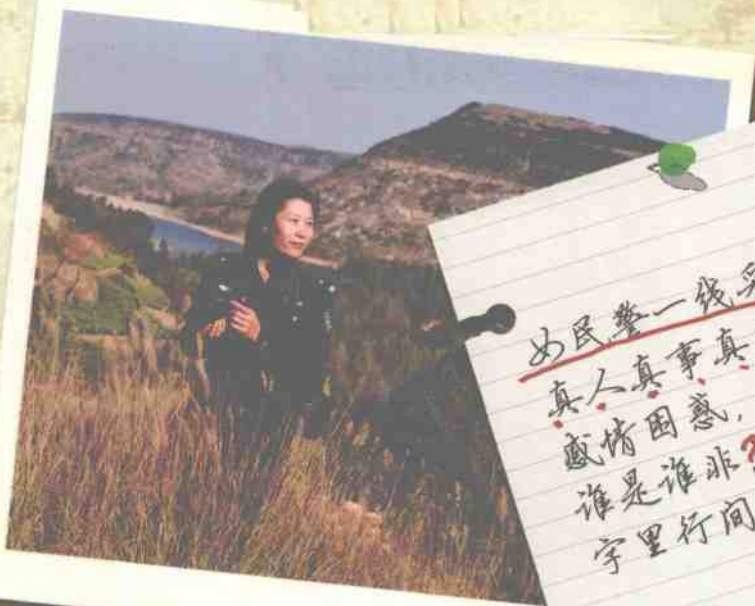 女民警一线
真人真事真
感情困惑，
谁是谁非?
字里行间